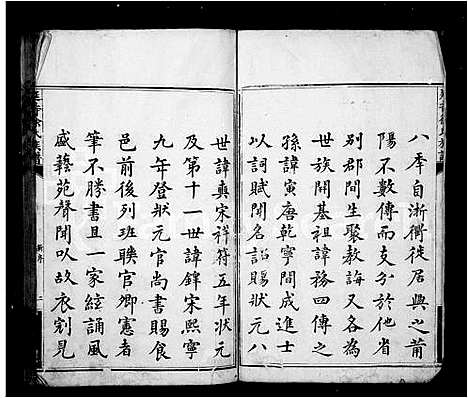 八季自浙衢徙居興之莆
陽不數傳而支分於他省
別郡間生聚教誨又各為
世族開基祖諱務四傳之
孫諱寅唐乾寧間成進士
以詞賦聞名詔賜狀元八
世諱奭宋祥符五年狀元
及第十一世諱鐸宋熙寧
九年登狀元官尚書賜食
邑前後列班聯官卿憲者
筆不勝書且一家絃誦風
盛藝苑聲聞以故衣冠見
徐氏族譜
新序
二